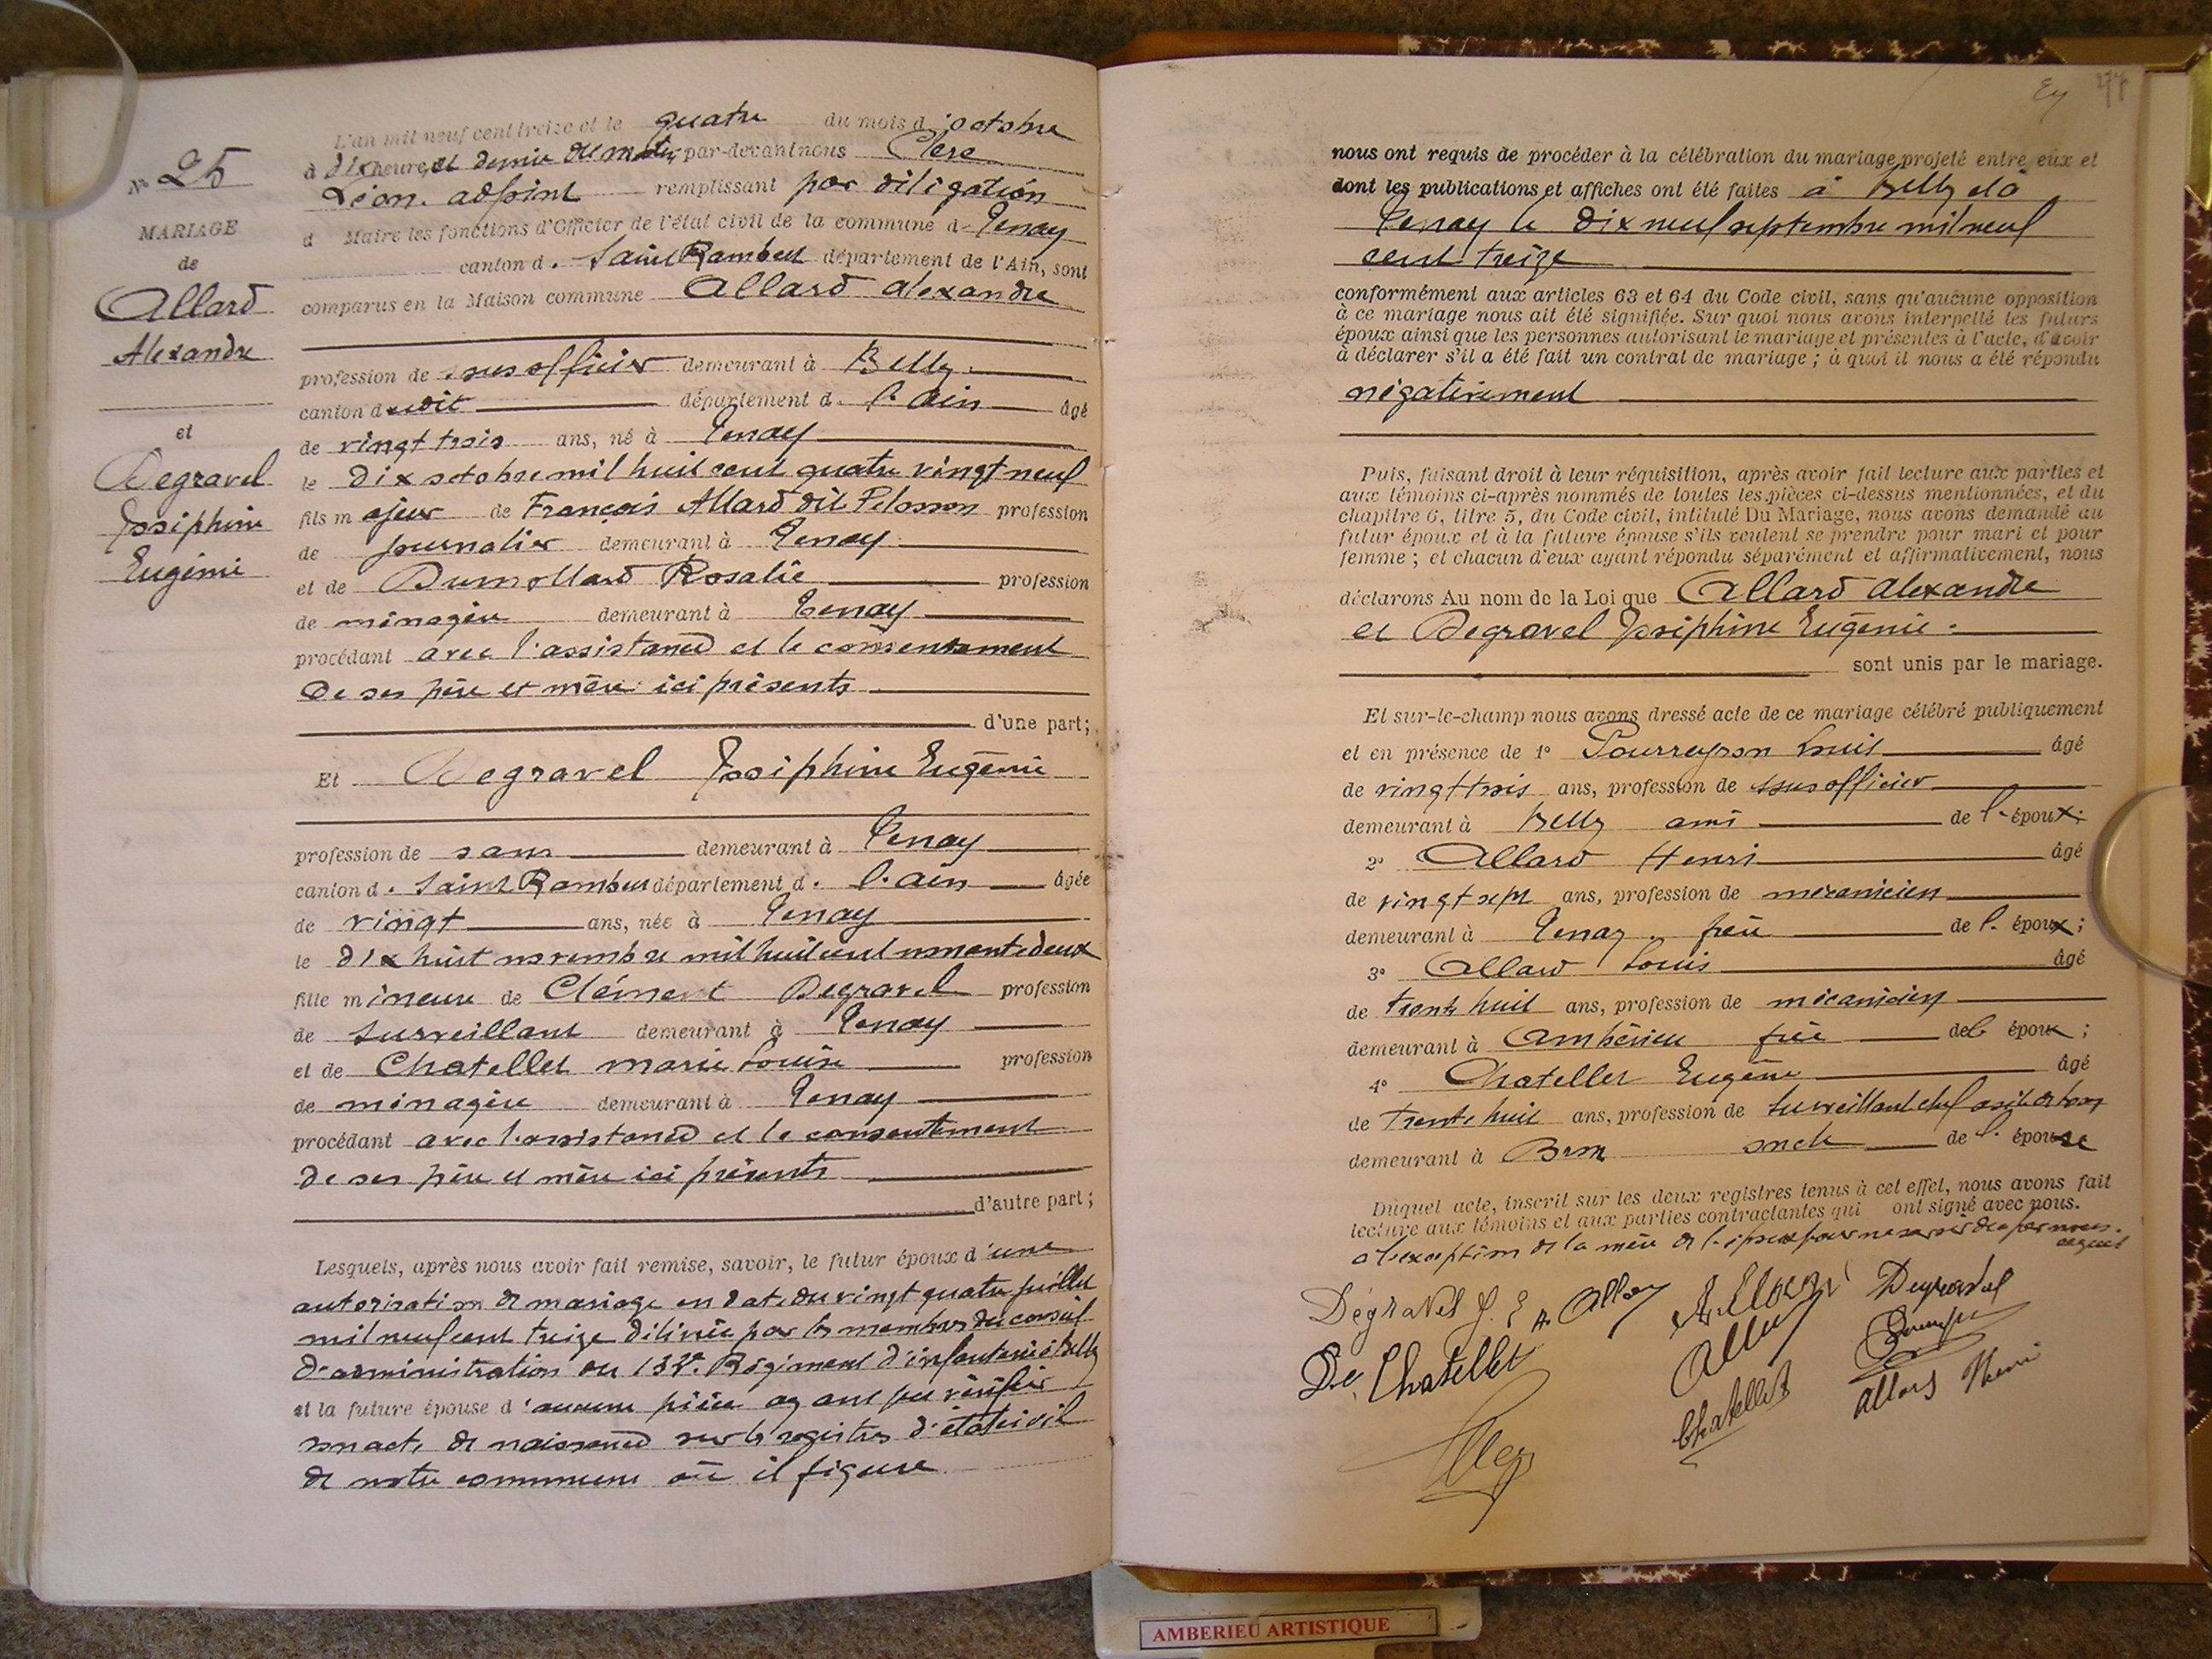 N° 25
MARIAGE
de
Allard
Alexandre
et
Degravel
Joséphine
Eugénie
L'an mil neuf cent treize et le quatre du mois d'octobre
à dix heures et demie du matin par-devant nous Clerc
Léon. adjoint remplissant par déligation
d Maire les fonctions d'Officier de l'état civil de la commune d. Tenay
canton d. Saint Rambert département de l'Ain, sont
comparus en la Maison commune Allard Alexandre
profession de sous officier demeurant à Belley
canton dudit département d. l'Ain âgé
de vingt trois ans, né à Tenay
le dix octobre mil huit cent quatre vingt neuf
fils majeur de François Allard dit Pelosson profession
de journalier demeurant à Tenay
et de Dumollard Rosalie profession
de ménagère demeurant à Tenay
procédant avec l'assistance et le consentement
de ses père et mère ici présents
d'une part;
Et Degravel Joséphine Eugénie
profession de sans demeurant à Tenay
canton d. Saint Rambert département d. l'Ain âgée
de vingt ans, née à Tenay
le dix huit novembre mil huit cent nonante deux
fille mineure de Clément Degravel profession
de surveillant demeurant à Tenay
et de Chatellet marie Louise profession
de ménagère demeurant à Tenay
procédant avec l'assistance et le consentement
de ses père et mère ici présents
d'autre part;
Lesquels, après nous avoir fait remise, savoir, le futur époux d'une
autorisation de mariage en date du vingt quatre juillet
mil neuf cent treize délivrée par les membres du conseil
d'administration du 133e. Régiment d'infanterie à Belley
et la future épouse d'aucune pièce ayant pu vérifier
son acte de naissance sur les registres d'état civil
de notre commune où il figure
nous ont requis de procéder à la célébration du mariage projeté entre eux et
dont les publications et affiches ont été faites à Belley et à
Tenay le dix neuf septembre mil neuf
cent treize
conformément aux articles 63 et 64 du Code civil, sans qu'aucune opposition
à ce mariage nous ait été signifiée. Sur quoi nous avons interpellé les futurs
époux ainsi que les personnes autorisant le mariage et présentes à l'acte, d'avoir
à déclarer s'il a été fait un contrat de mariage ; à quoi il nous a été répondu
négativement
Puis, faisant droit à leur réquisition, après avoir fait lecture aux parties et
aux témoins ci-après nommés de toutes les pièces ci-dessus mentionnées, et du
chapitre 6, titre 5, du Code civil, intitulé Du Mariage, nous avons demandé au
futur époux et à la future épouse s'ils veulent se prendre pour mari et pour
femme ; et chacun d'eux ayant répondu séparément et affirmativement, nous
déclarons Au nom de la Loi que Allard Alexandre
et Degravel Joséphine Eugénie
sont unis par le mariage.
Et sur-le-champ nous avons dressé acte de ce mariage célébré publiquement
et en présence de 1° Pourreyson Louis âgé
de vingt trois ans, profession de sous officier
demeurant à Belley ami de l'époux;
2° Allard Henri âgé
de vingt sept ans, profession de mécanicien
demeurant à Tenay. frère de l'époux;
3° Allard Louis âgé
de trente huit ans, profession de mécanicien
demeurant à Ambérieu frère de l'époux;
4° Chatellet Eugène âgé
de trente huit ans, profession de surveillant chef
demeurant à Bron oncle de l'épouse
Duquel acte, inscrit sur les deux registres tenus à cet effet, nous avons fait
lecture aux témoins et aux parties contractantes qui ont signé avec nous.
à l'exception de la mère de l'époux pour ne savoir de ce par nous
requis
Dégravel J. E A. Allard Degravel
De Chatellet
Chatellet Allard Henri
AMBERIEU ARTISTIQUE